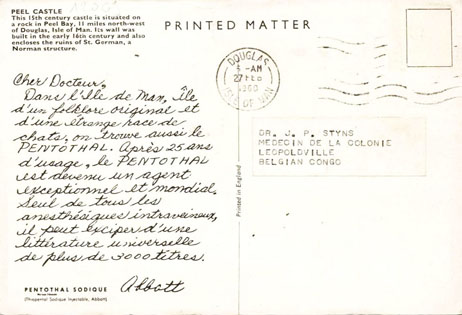 PEEL CASTLE
This 15th century castle is situated on
a rock in Peel Bay, 11 miles north-west
of Douglas, Isle of Man. Its wall was
built in the early 16th century and also
encloses the ruins of St. Gorman, a
Norman structure.
PRINTED MATTER
DOUGLAS
-AM
27 FEB
1960
ISLE OF MAN
Cher Docteur,
Dans l'Ile de Man, Île
d'un folklore original et
d'une étrange race de
chats, on trouve aussi le
PENTOTHAL. Après 25 ans
d'usage, le PENTOTHAL
est devenu un agent
exceptionnel et mondial.
Seul de tous les
anesthésiques intraveineux,
il peut exciper d'une
littérature universelle
de plus de 3000 titres.
Abbott
PENTOTHAL SODIQUE
(Thiopental Sodique Injectable, Abbott)
Printed in England
DR. J. P. STYNS
MEDECIN DE LA COLONIE
LEOPOLDVILLE
BELGIAN CONGO